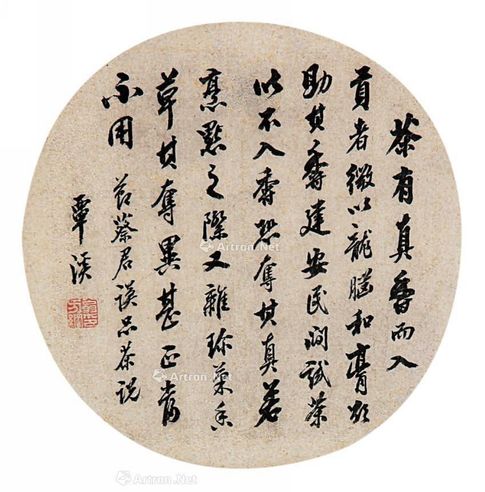 茶有真香而入
貢者微以龍腦和膏欲
助其香建安民間試茶
以不入香恐奪其真若
烹點之際又雜珍菓香
草其奪異甚正當
不用 節蔡君謨品茶說
覃溪
Artron.Net
Artron.Net
Artron.Net